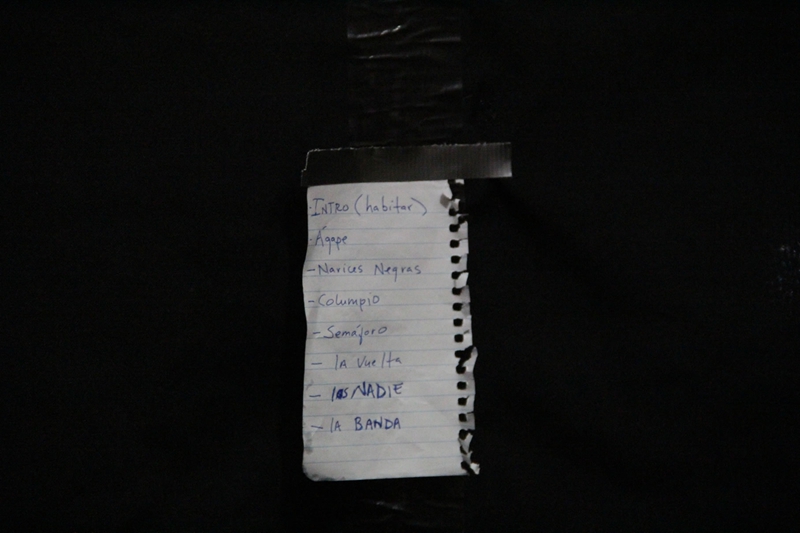 - INTRO (habitar)
- Ágape
- Narices Negras
- Columpio
- Semáforo
- la Vuelta
- los NADIE
- la BANDA